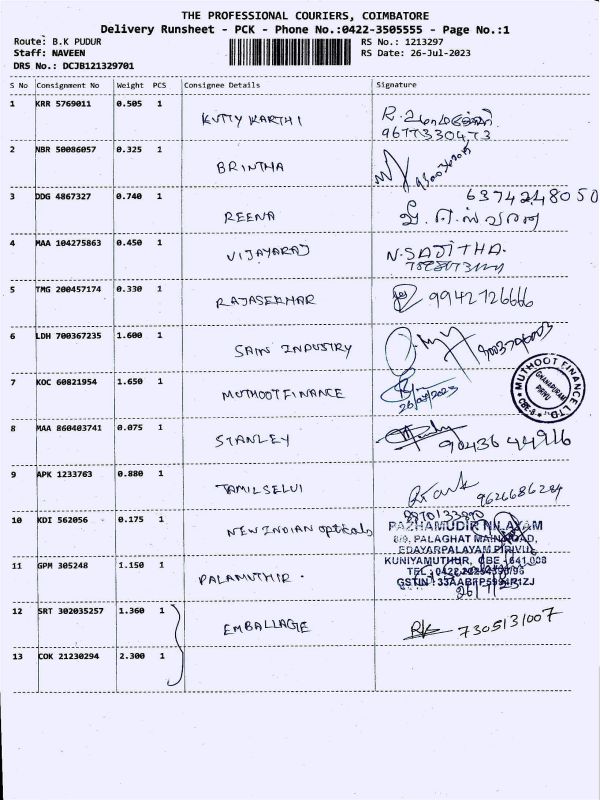 THE PROFESSIONAL COURIERS, COIMBATORE
Delivery Runsheet - PCK - Phone No.:0422-3505555 - Page No.:1
Route: B.K PUDUR RS No.: 1213297
Staff: NAVEEN RS Date: 26-Jul-2023
DRS No.: DCJB121329701
S No Consignment No Weight PCS Consignee Details Signature
1 KRR 5769011 0.505 1 KUTTY KARTHI
9677330473
2 NBR 50086057 0.325 1 BRINTHA
3 DDG 4867327 0.740 1 REENA 6374248050
4 MAA 104275863 0.450 1 VIJAYARAJ N.SAJITHA.
5 TMG 200457174 0.330 1 RAJASEKHAR 9942726666
6 LDH 700367235 1.600 1 SAIN INDUSTRY
7 KOC 60821954 1.650 1 MUTHOOT FINANCE 26/07/2023
MUTHOOT FINANCE LTD.,
8 MAA 860403741 0.075 1 STANLEY 9043644916
9 APK 1233763 0.880 1 TAMILSELVI 9626686284
10 KDI 562056 0.175 1 NEW INDIAN opticals 8870133890
PAZHAMUDIR NILAYAM
8/9, PALAGHAT MAIN ROAD,
EDAYARPALAYAM PIRIVU,
11 GPM 305248 1.150 1 PALAMUTHIR. KUNIYAMUTHUR, CBE - 641 008
12 SRT 302035257 1.360 1 EMBALLAGE 7305131007
13 COK 21230294 2.300 1